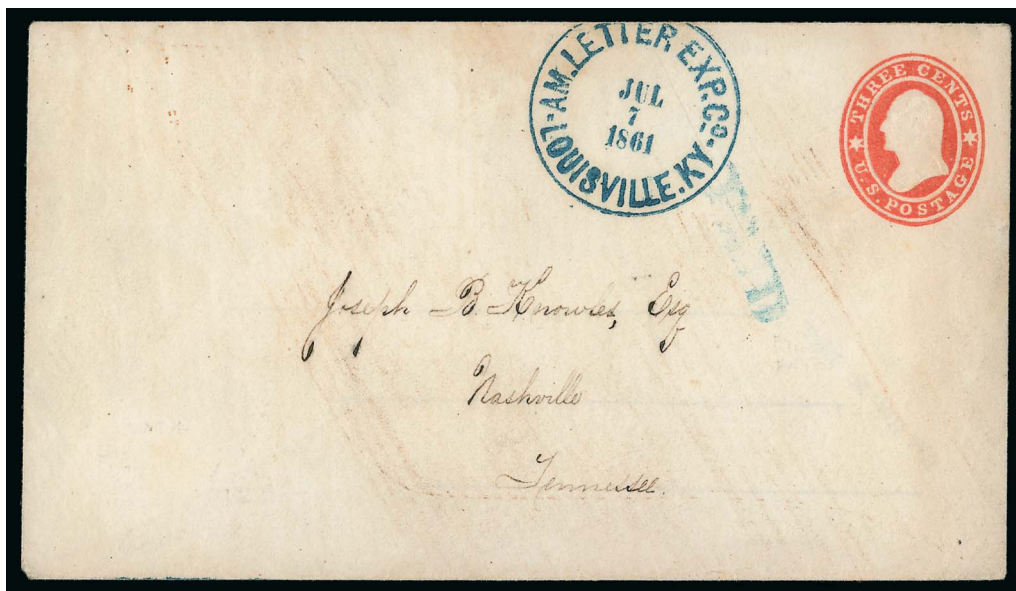 AM. LETTER EXP. Co.
JUL
7
1861
LOUISVILLE. KY
THREE CENTS
U.S. POSTAGE
Joseph B. Knowles, Esq
Nashville
Tennessee.